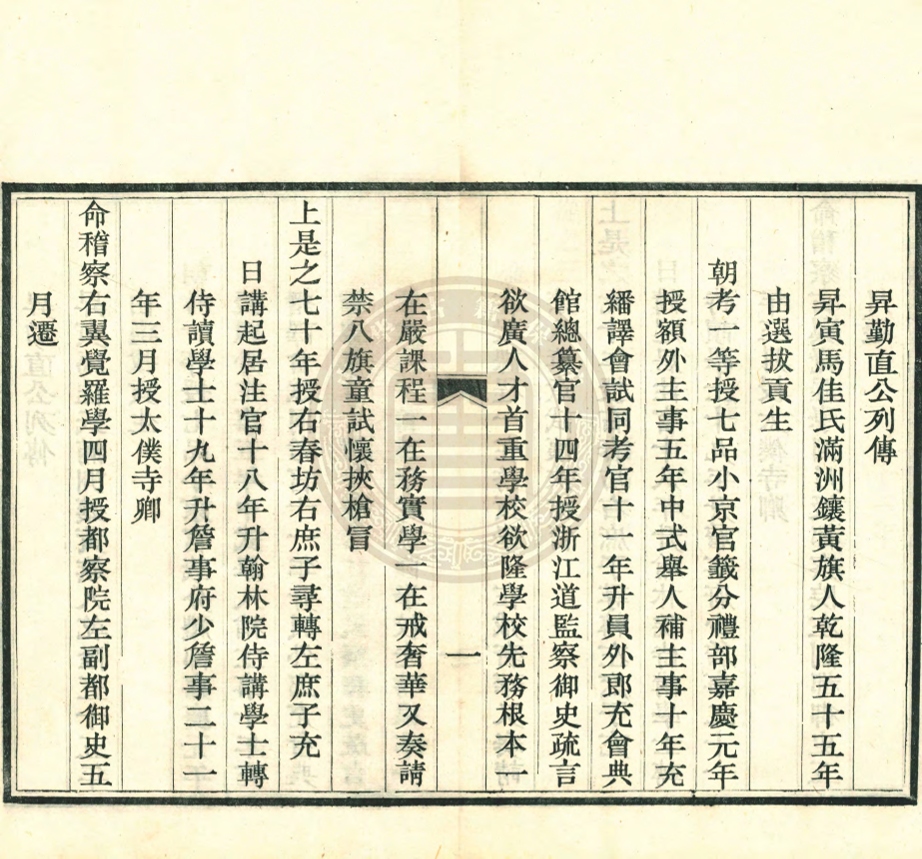 昇勤直公列傳
昇寅馬佳氏滿洲鑲黃旗人乾隆五十五年
由選拔貢生
朝考一等授七品小京官籤分禮部嘉慶元年
授額外主事五年中式舉人補主事十年充
繙譯會試同考官十一年升員外郎充會典
館總纂官十四年授浙江道監察御史疏言
欲廣人才首重學校欲隆學校先務根本一
一
在嚴課程一在務實學一在戒奢華又奏請
禁八旗童試懷挾槍冒
上是之七十年授右春坊右庶子尋轉左庶子充
日講起居注官十八年升翰林院侍講學士轉
侍讀學士十九年升詹事府少詹事二十一
年三月授太僕寺卿
命稽察右翼覺羅學四月授都察院左副都御史五
月遷